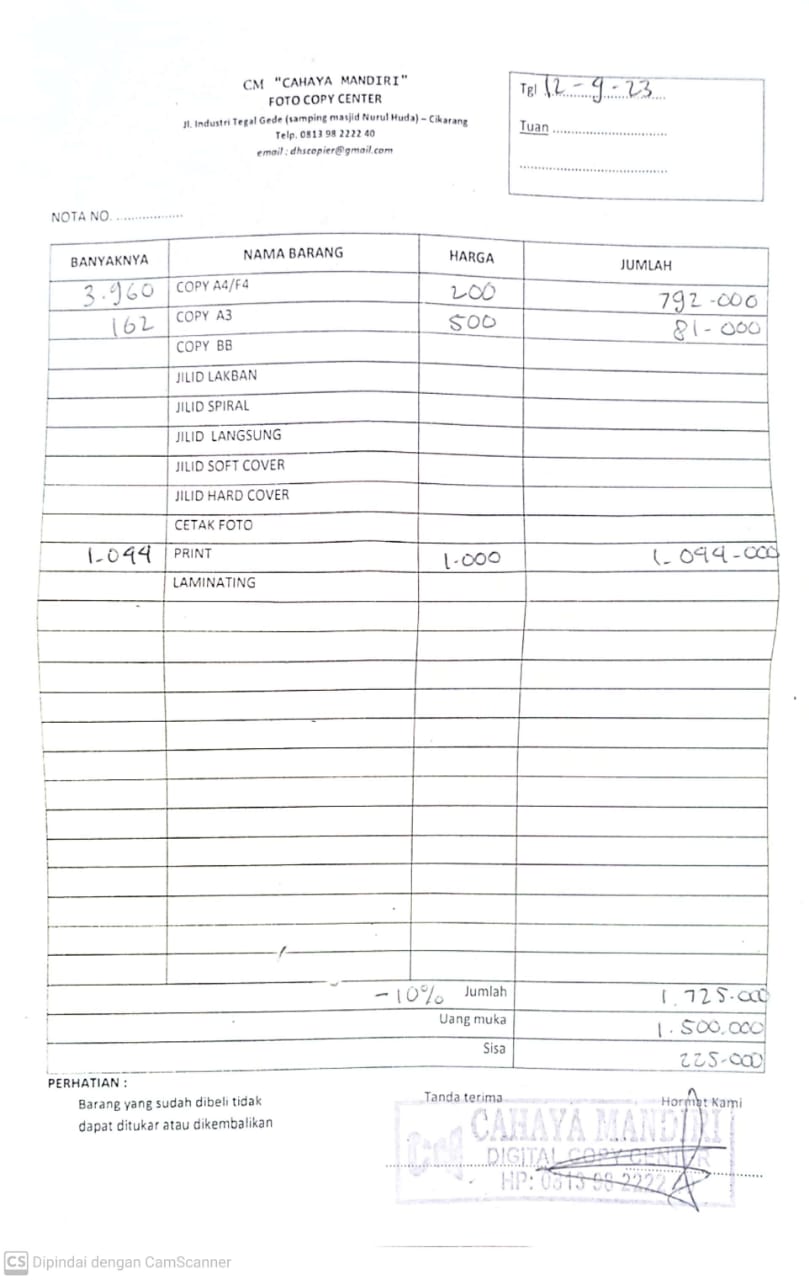 CM "CAHAYA MANDIRI"
FOTO COPY CENTER
Jl. Industri Tegal Gede (samping masjid Nurul Huda) – Cikarang
Telp. 0813 98 2222 40
email : dhscopier@gmail.com
Tgl 12 - 9 - 23
Tuan ..............................
NOTA NO. .................
BANYAKNYA NAMA BARANG HARGA JUMLAH
3.960 COPY A4/F4 200 792.000
162 COPY A3 500 81-000
COPY BB
JILID LAKBAN
JILID SPIRAL
JILID LANGSUNG
JILID SOFT COVER
JILID HARD COVER
CETAK FOTO
1-044 PRINT 1.000 1-044-000
LAMINATING
-10% Jumlah 1.725.000
Uang muka 1.500.000
Sisa 225-000
PERHATIAN :
Barang yang sudah dibeli tidak
dapat ditukar atau dikembalikan
Tanda terima
Hormat Kami
CAHAYA MANDIRI
DIGITAL COPY CENTER
HP: 0813 98 2222
CS Dipindai dengan CamScanner